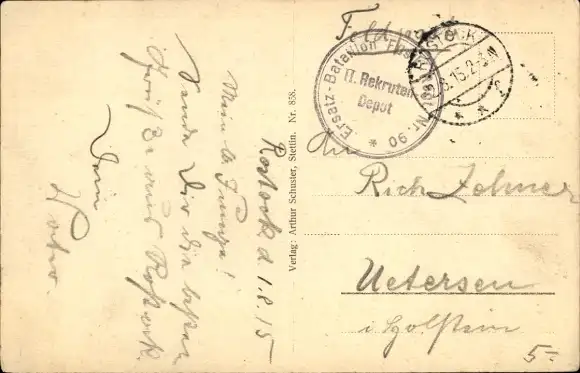 Rostock d 1.8.15
Mein lb Junge!
Sende Dir die besten
Grüße aus Rostock.
Dein
Feldpost
ROSTOCK
15.2-3N
Ersatz-Bataillon Füs. Regt. Nr. 90
II. Rekruten
Depot
An
Rich
Uetersen
i Holstein
5-
Verlag: Arthur Schuster, Stettin. Nr. 858.